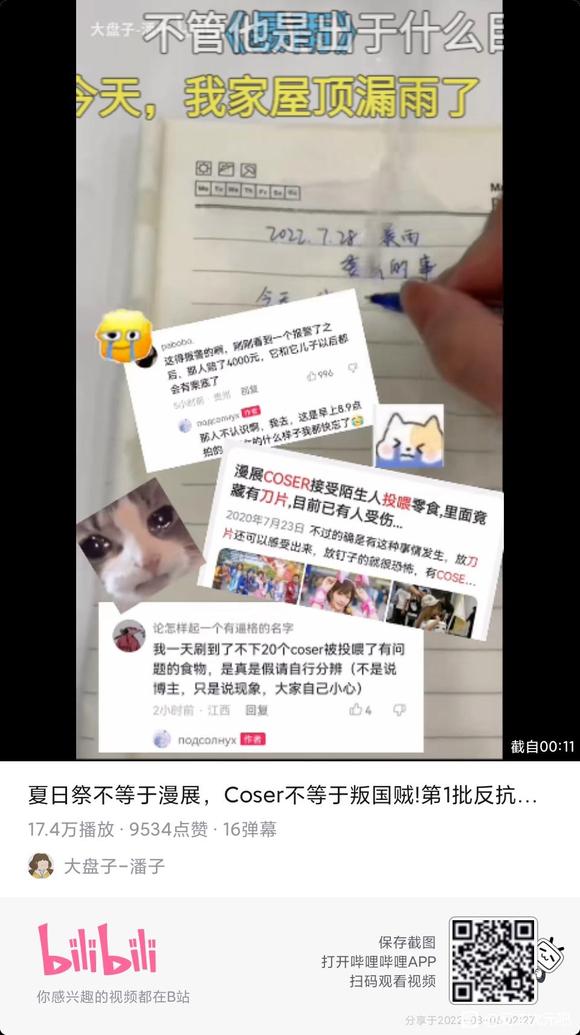 大盘子-潘
《暴雨》
不管他是出于什么目
今天，我家屋顶漏雨了
Mo Tu We Th Fr Sa Su
2022.7.28 暴雨
今天
pabobo.
这得报警的啊，刚刚看到一个报警了之
后，那人赔了4000元，它和它儿子以后都
会有案底了
5小时前·贵州 回复
996
подсолнух 作者
那人不认识啊，我去，这是早上8.9点
拍的
的什么样子我都快忘了
漫展COSER接受陌生人投喂零食,里面竟
藏有刀片,目前已有人受伤...
2020年7月23日 不过的确是有这种事情发生，放刀
片还可以感受出来，放钉子的就很恐怖，有COSE...
论怎样起一个有逼格的名字
我一天刷到了不下20个coser被投喂了有问
题的食物，是真是假请自行分辨（不是说
博主，只是说现象，大家自己小心）
2小时前·江西 回复
4
подсолнух 作者
截自00:11
夏日祭不等于漫展，Coser不等于叛国贼!第1批反抗...
17.4万播放·9534点赞·16弹幕
大盘子-潘子
bilibili
你感兴趣的视频都在B站
保存截图
打开哔哩哔哩APP
扫码观看视频
分享于2022-08-08 02:27